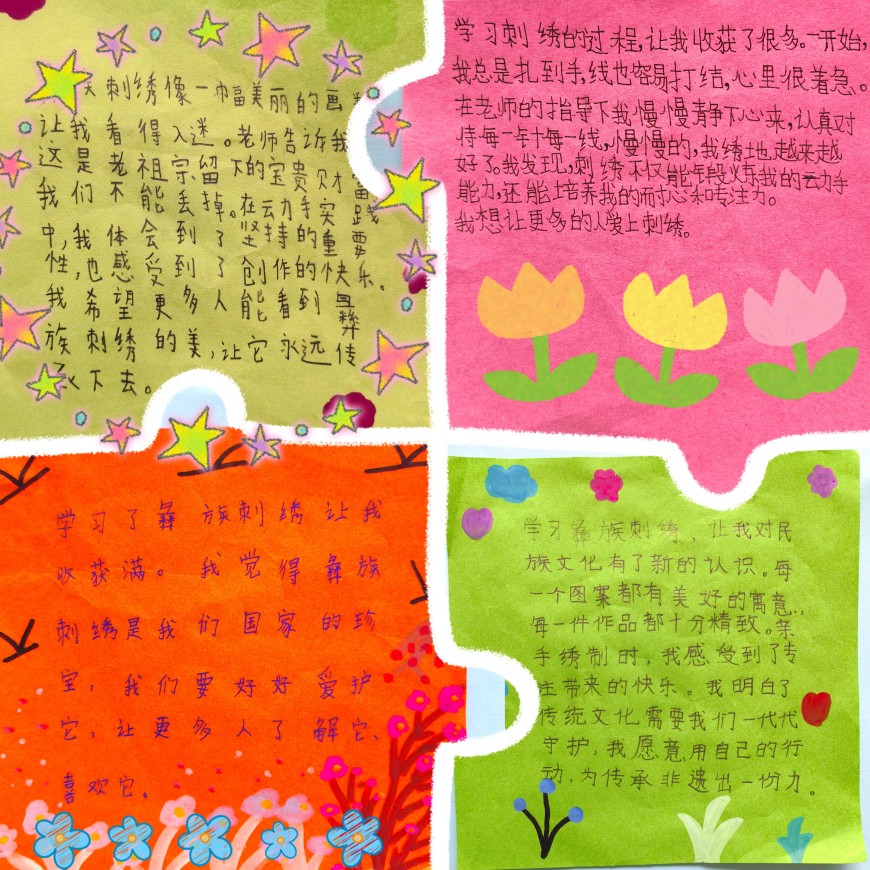 刺绣像一幅美丽的画
让我看得入迷。老师告诉我
这是老祖宗留下的宝贵财富
我们不能丢掉。在动手实践
中,我体会到了坚持的重要
性,也感受到了创作的快乐。
我希望更多人能看到彝
族刺绣的美,让它永远传
承下去。
学习刺绣的过程,让我收获了很多。一开始,
我总是扎到手,线也容易打结,心里很着急。
在老师的指导下我慢慢静下心来,认真对
待每一针每一线,慢慢的,我绣地越来越
好了。我发现,刺绣不仅能锻炼我的动手
能力,还能培养我的耐心和专注力。
我想让更多的人爱上刺绣。
学习了彝族刺绣让我
收获满。我觉得彝族
刺绣是我们国家的珍
宝,我们要好好爱护
它,让更多人了解它、
喜欢它。
学习彝族刺绣,让我对民
族文化有了新的认识。每
一个图案都有美好的寓意,
每一件作品都十分精致。亲
手绣制时,我感受到了专
注带来的快乐。我明白了
传统文化需要我们一代代
守护,我愿意用自己的行
动,为传承非遗出一份力。